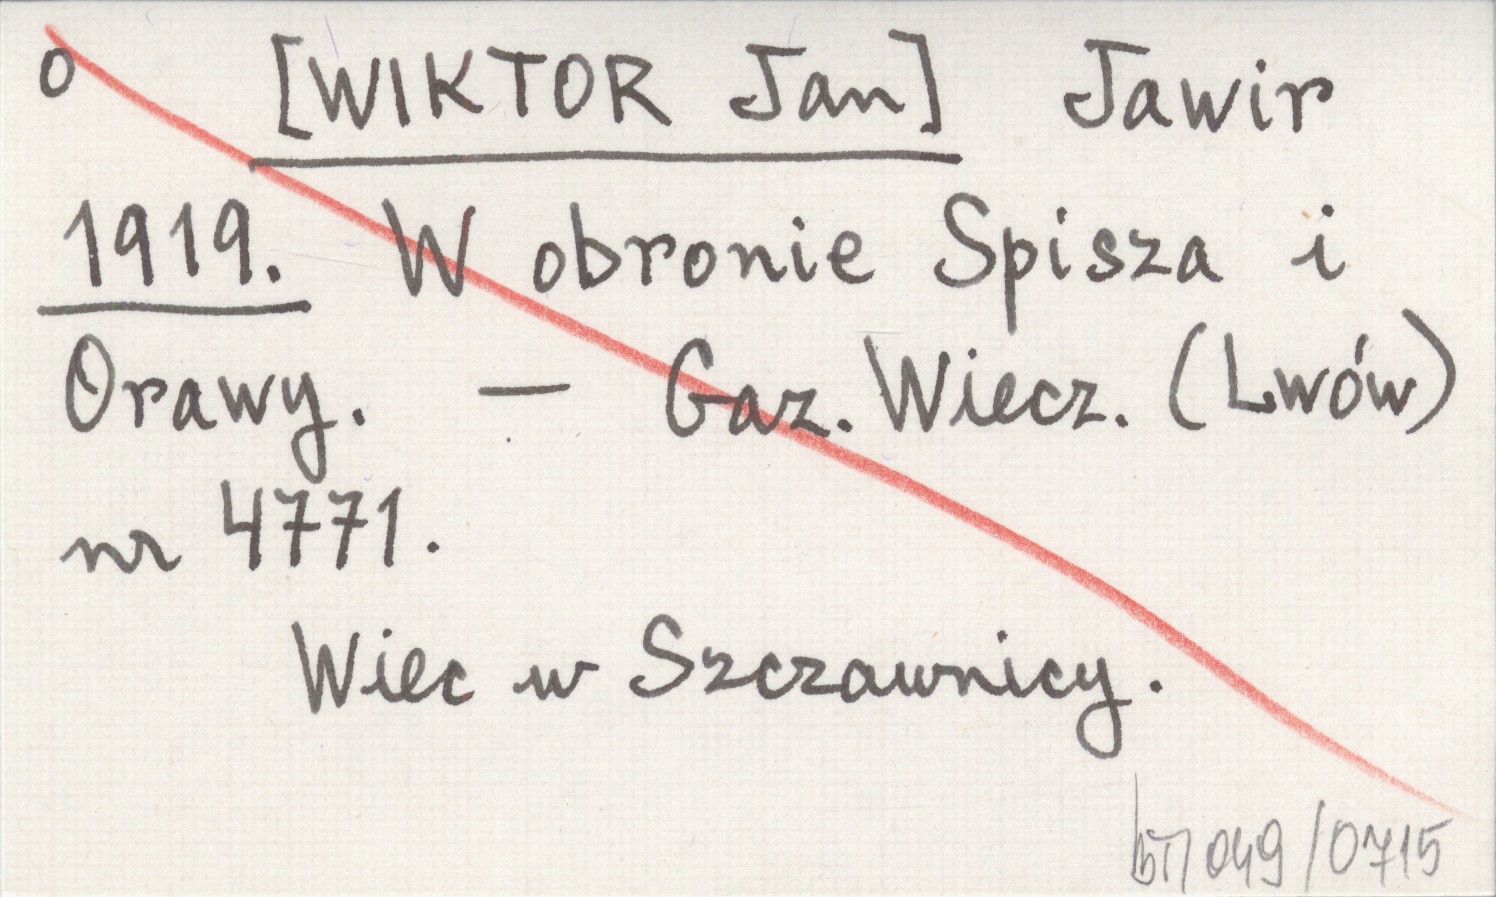 o [WIKTOR Jan] Jawir
1919. W obronie Spisza i
Orawy. — Gaz. Wiecz. (Lwów)
nr 4771.
Wiec w Szczawnicy.
049/0715